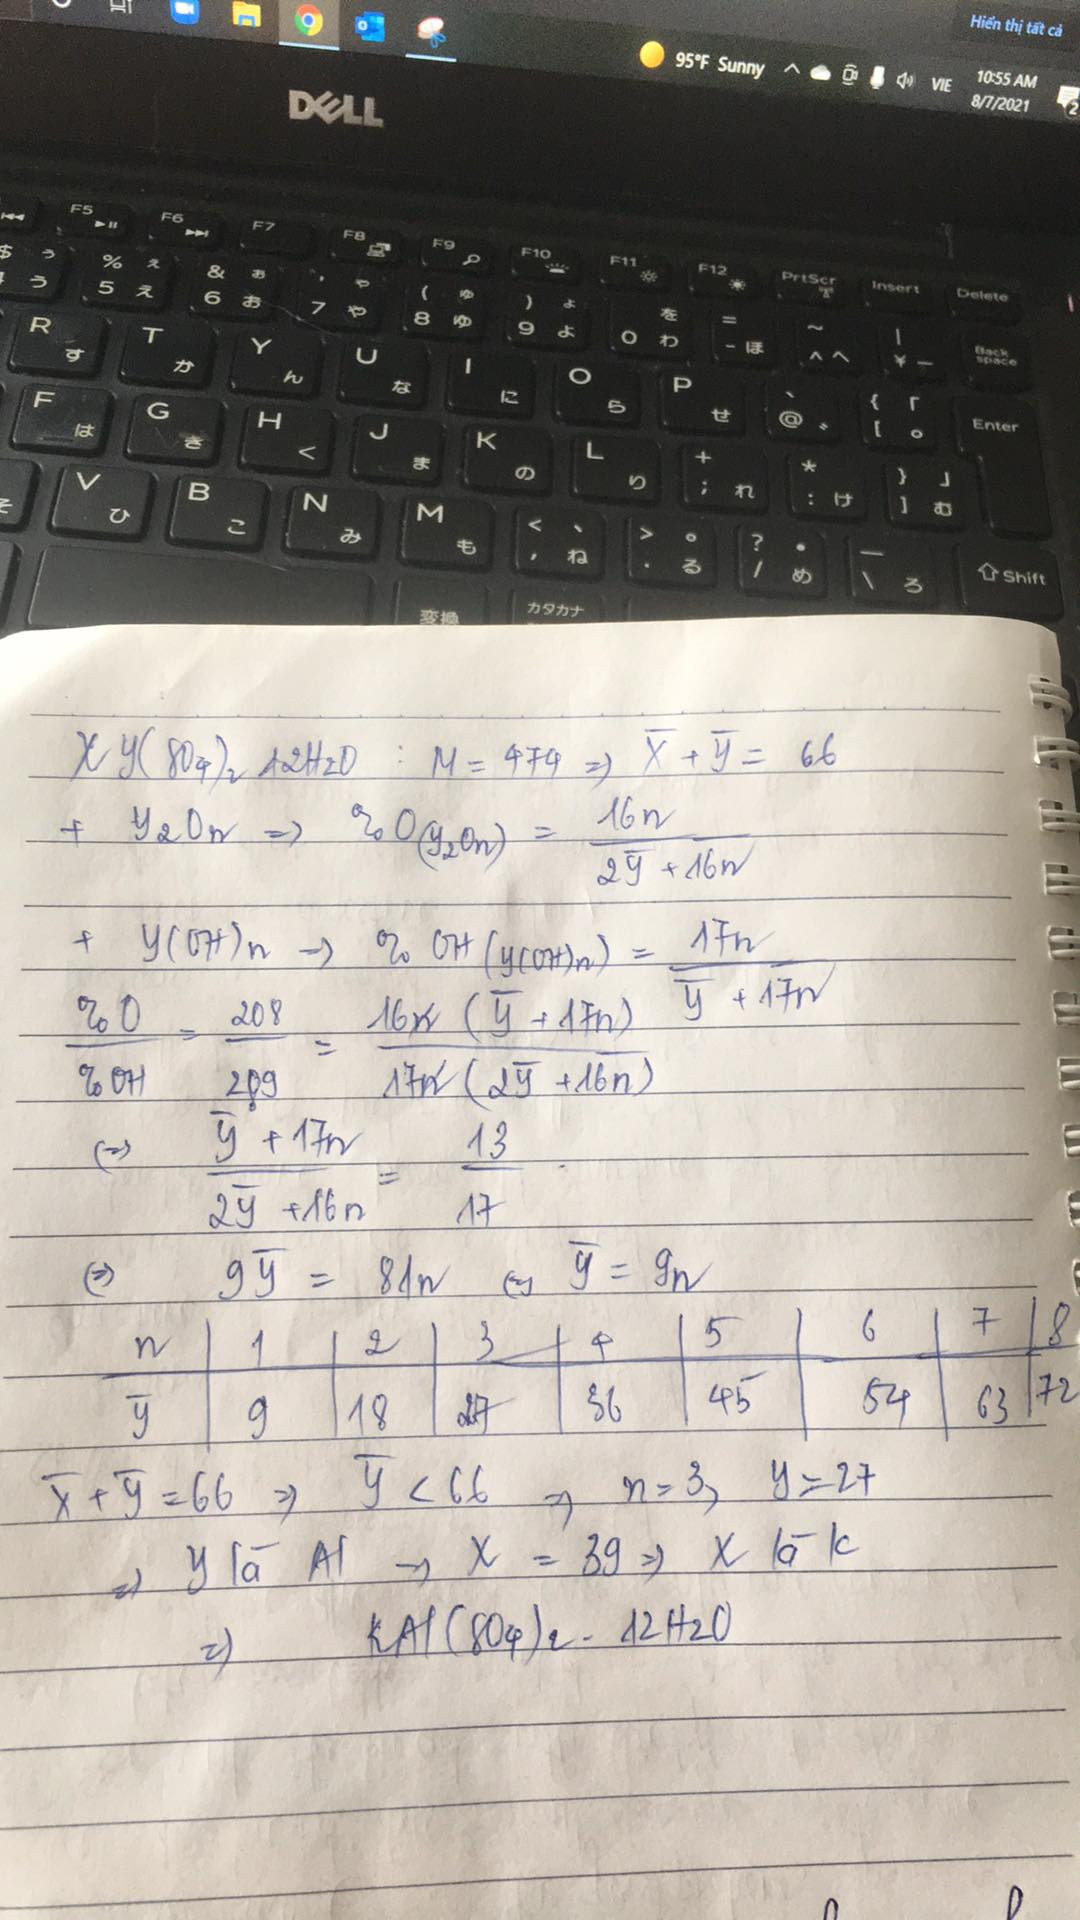 Hiển thị tất cả
95°F Sunny VIE 10:55 AM
8/7/2021
2
DELL
F5 F6 F7 F8 F9 F10 F11 F12 PrtScr Insert Delete
$ う % え & お ' や ( ゆ ) よ を = ~ |
4 う 5 え 6 お 7 や 8 ゆ 9 よ 0 わ - ほ ^ へ ¥ ー Back space
R す T か Y ん U な I に O ら P せ @ { 「 [ 。 Enter
F は G き H く J ま K の L り + ; れ * : け } 」 ] む
そ V ひ B こ N み M も < 、 , ね > 。 . る ? ・ / め \ ろ Shift
変換 カタカナ
XY(SO4)2 12H2O : M = 474 => X̄ + Ȳ = 66
+ Y2On => %O(Y2On) = 16n / 2Ȳ + 16n
+ Y(OH)n -> %OH(Y(OH)n) = 17n / Ȳ + 17n
%O / %OH = 208 / 289 = 16n (Ȳ + 17n) / 17n (2Ȳ + 16n)
(=) Ȳ + 17n / 2Ȳ + 16n = 13 / 17
(=) 9Ȳ = 81n (=) Ȳ = 9n
n | 1 | 2 | 3 | 4 | 5 | 6 | 7 | 8
Ȳ | 9 | 18 | 27 | 36 | 45 | 54 | 63 | 72
X̄ + Ȳ = 66 => Ȳ < 66 => n = 3, Y = 27
=> Y là Al -> X = 39 => X là K
=> KAl(SO4)2 . 12H2O